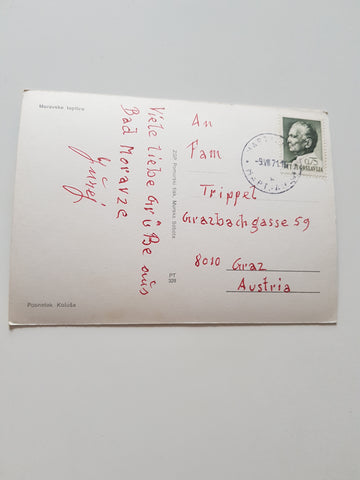 Moravske toplice
Viele liebe Grüße aus
Bad Moravze
ZGP Pomurski tisk, Murska Sobota
PT
Posnetek Kološa
An
Fam
Trippel
Grazbachgasse 59
8010 Graz
Austria
0,75
JUGOSLAVIJA
-9.VII.71